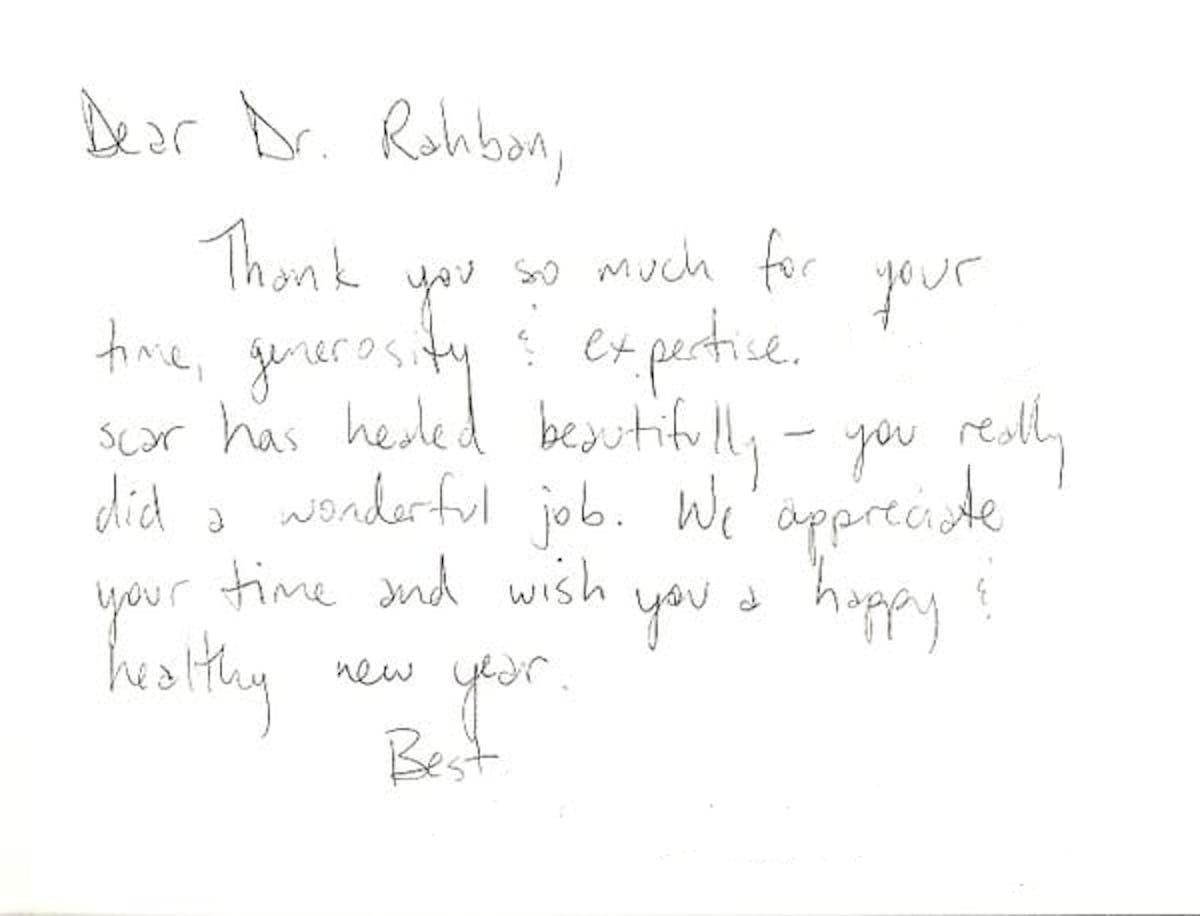 Dear Dr. Rahban,
Thank you so much for your
time, generosity & expertise.
scar has healed beautifully – you really
did a wonderful job. We appreciate
your time and wish you a happy &
healthy new year.
Best